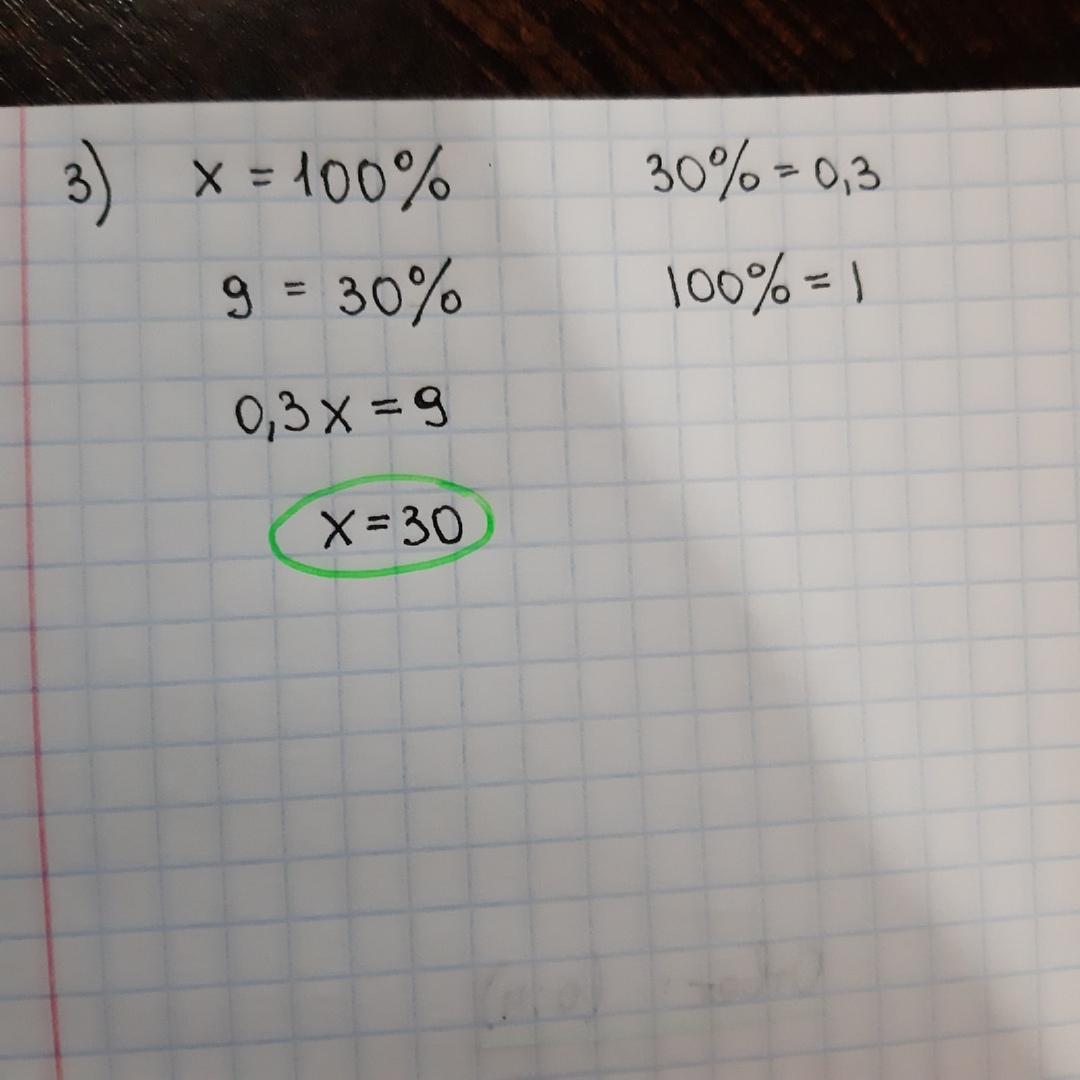 3) x = 100% 30% = 0,3
9 = 30% 100% = 1
0,3x = 9
x = 30